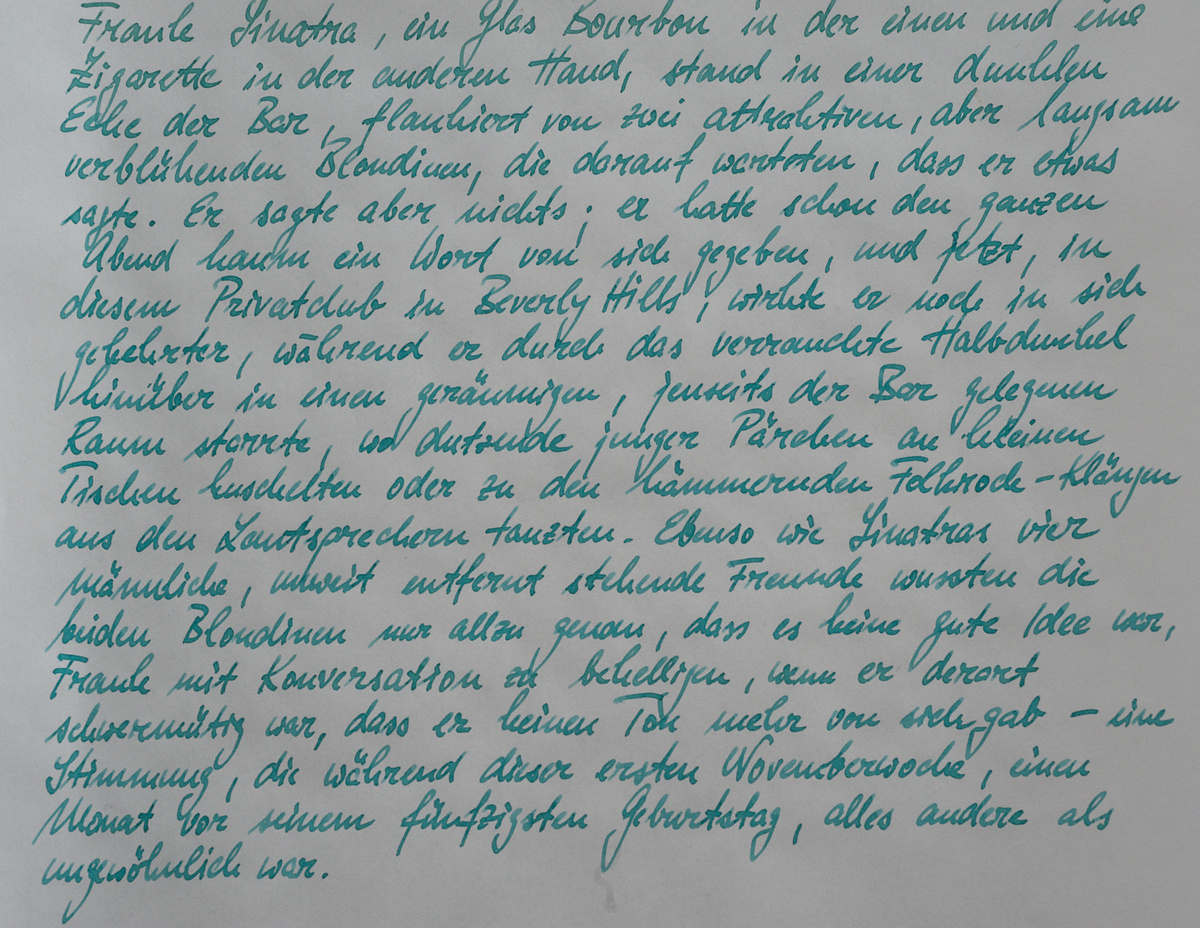 Frank Sinatra, ein Glas Bourbon in der einen und eine
Zigarette in der anderen Hand, stand in einer dunklen
Ecke der Bar, flankiert von zwei attraktiven, aber langsam
verblühenden Blondinen, die darauf warteten, dass er etwas
sagte. Er sagte aber nichts; er hatte schon den ganzen
Abend kaum ein Wort von sich gegeben, und jetzt, in
diesem Privatclub in Beverly Hills, wirkte er noch in sich
gekehrter, während er durch das verrauchte Halbdunkel
hinüber in einen geräumigen, jenseits der Bar gelegenen
Raum starrte, wo dutzende junger Pärchen an kleinen
Tischen kuschelten oder zu den hämmernden Folkrock-Klängen
aus den Lautsprechern tanzten. Ebenso wie Sinatras vier
männliche, unweit entfernt stehende Freunde wussten die
beiden Blondinen nur allzu genau, dass es keine gute Idee war,
Frank mit Konversation zu behelligen, wenn er derart
schwermütig war, dass er keinen Ton mehr von sich gab – eine
Stimmung, die während dieser ersten Novemberwoche, einen
Monat vor seinem fünfzigsten Geburtstag, alles andere als
ungewöhnlich war.